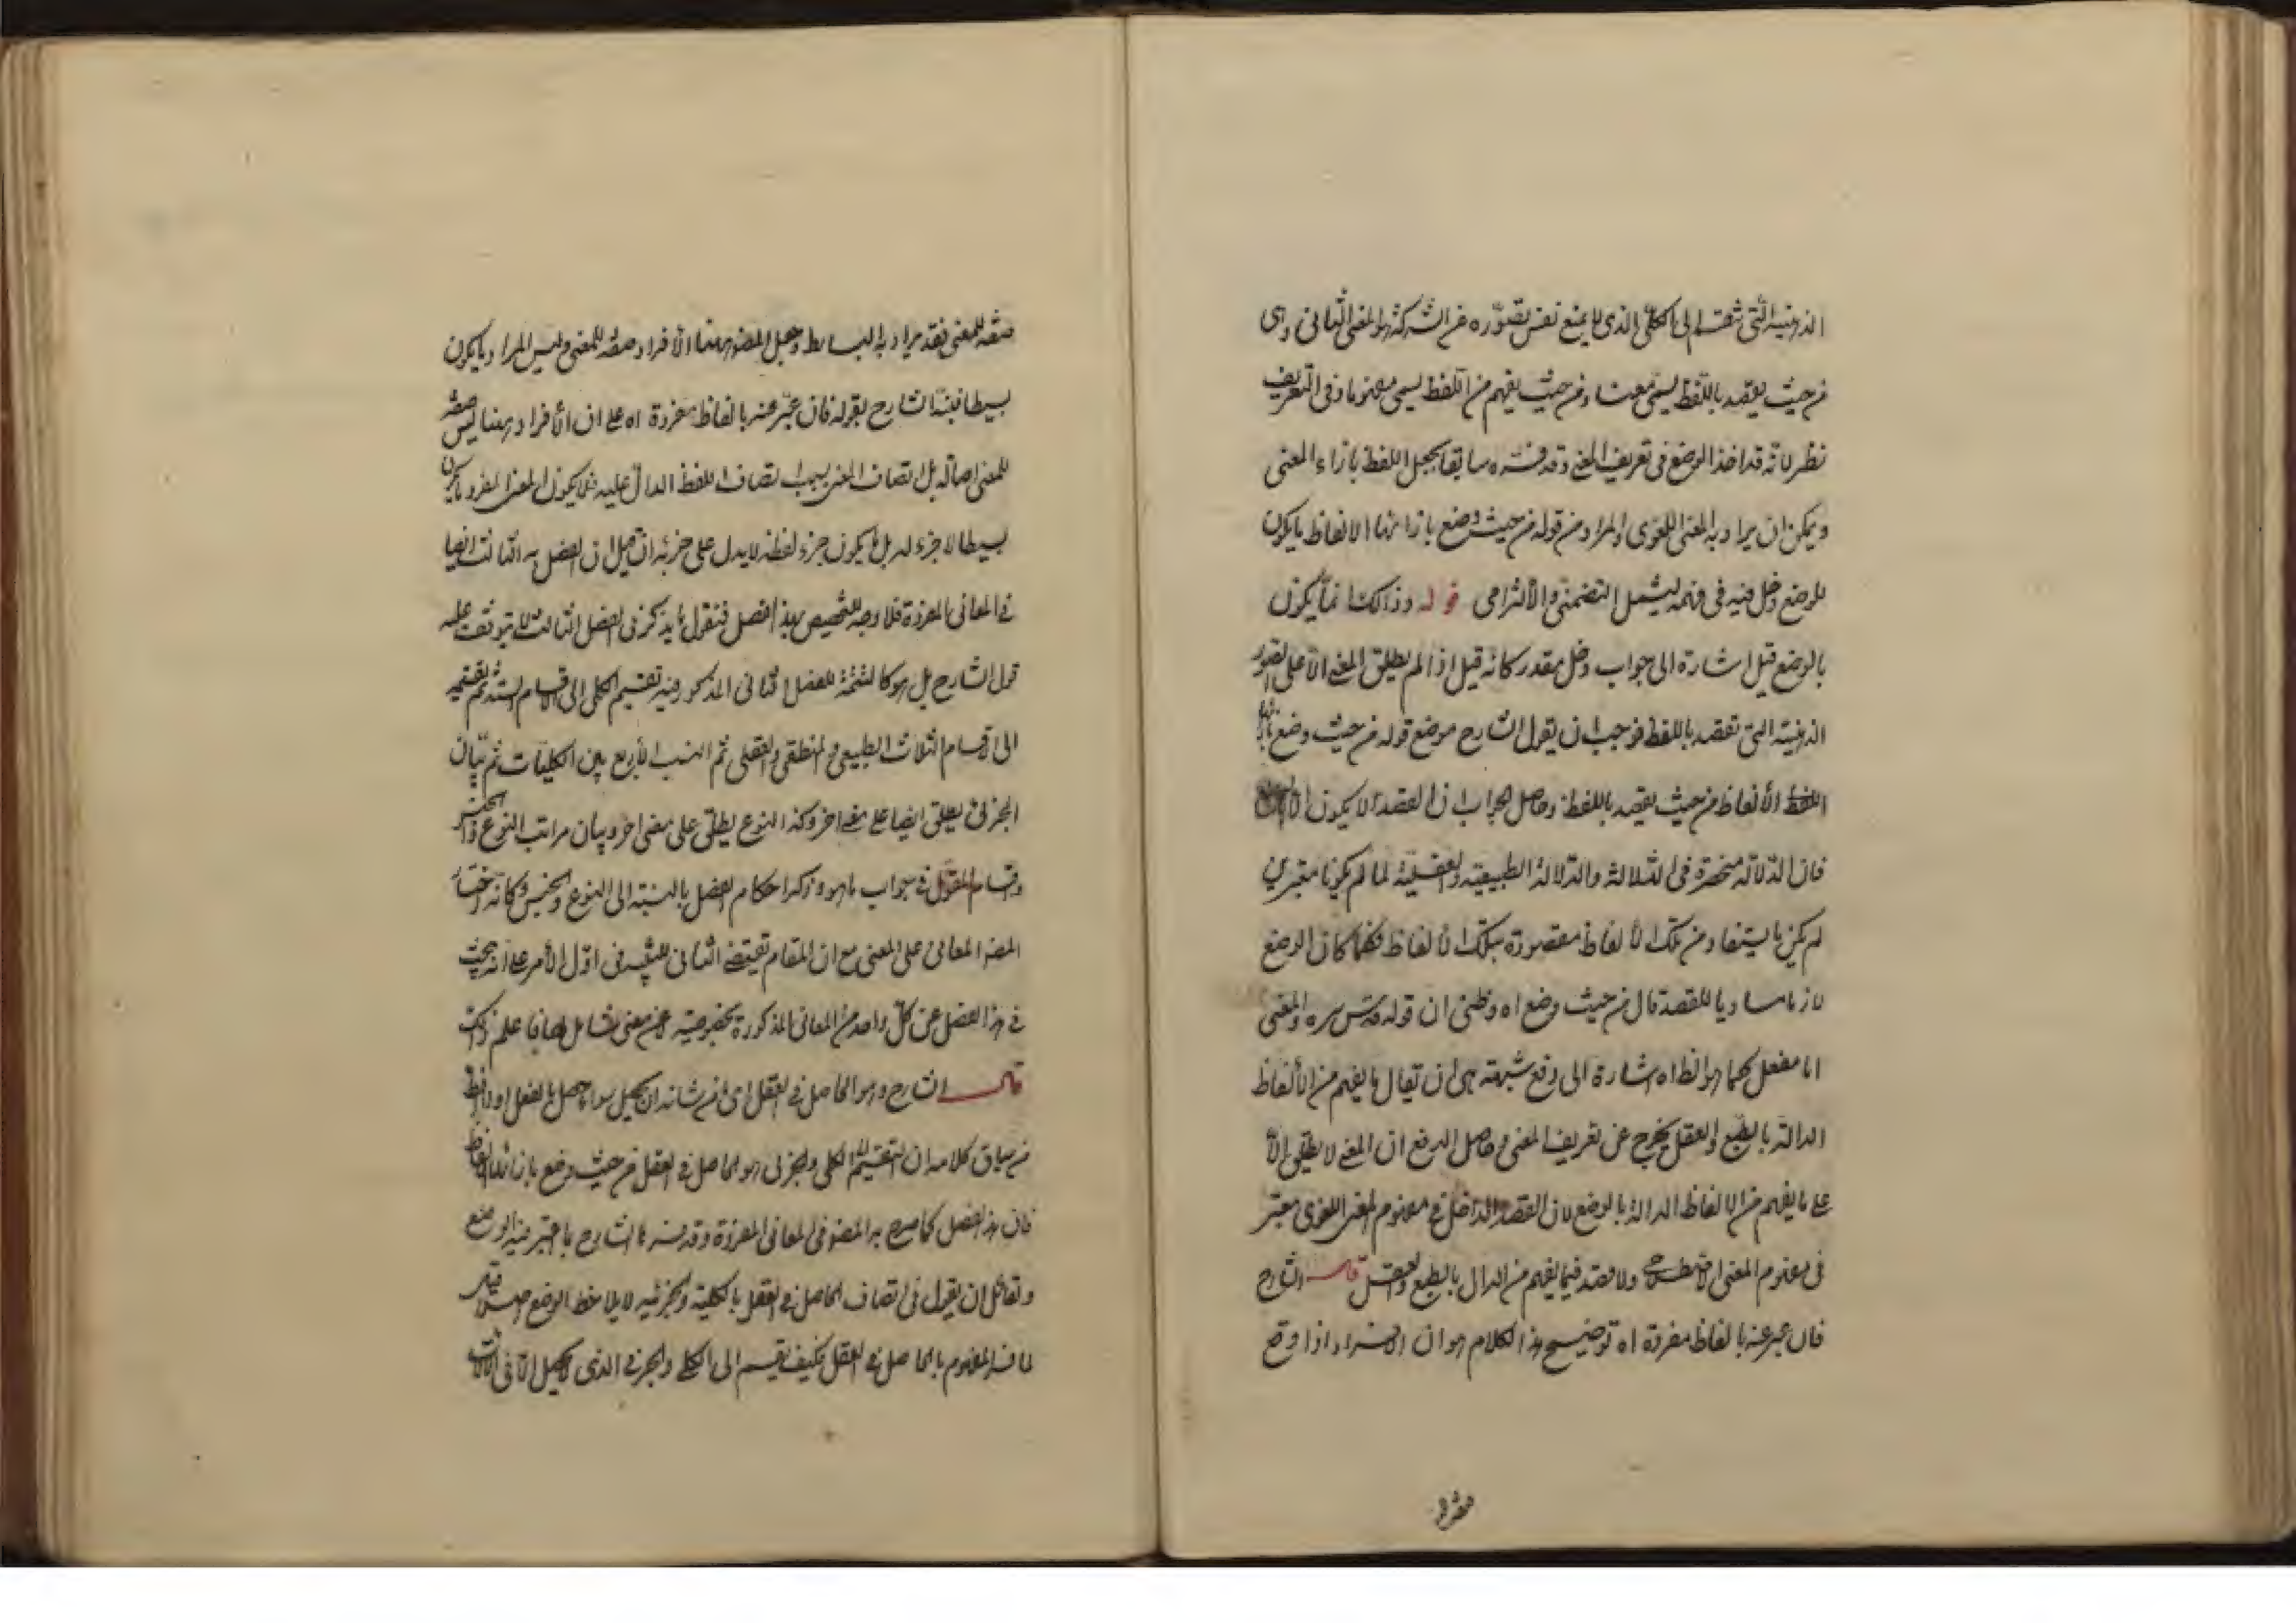 الذهنية التي تنقسم الى الكلي الذي لا يمنع نفس تصوره عن الشركة هو المعنى الثاني وهي
من حيث يقصد باللفظ يسمى معنى ومن حيث يفهم من اللفظ يسمى مفهوما وفي التعريف
نظر لانه قد اخذ الوضع في تعريف المعنى وقد فسره سابقا بجعل اللفظ بازاء المعنى
ويمكن ان يراد به المعنى اللغوى والمراد من قوله من حيث وضع بازائها الالفاظ ما يكون
للوضع دخل فيه في فهمه ليشمل التضمني والالتزامى قوله وذلك انما يكون
بالوضع قيل اشارة الى جواب دخل مقدر كانه قيل اذا لم يطلق المعنى الا على الصور
الذهنية التي تقصد باللفظ فوجب ان يقول الشارح موضع قوله من حيث وضع بازائها
الالفاظ من حيث يقصد باللفظ وحاصل الجواب ان القصد لا يكون الا
فان الدلالة منحصرة فى الثلاثة والدلالة الطبيعية والعقلية لما لم يكونا معتبرين
لم يكن ما يستفاد من تلك الالفاظ مقصودة بتلك الالفاظ فلما كان الوضع
لازما مساويا للقصد قال من حيث وضع اه وظنى ان قوله قدس سره والمعنى
اما مفعل كما هو الظاه اشارة الى دفع شبهة هى ان يقال ما يفهم من الالفاظ
الدالة بالطبع والعقل يخرج عن تعريف المعنى وحاصل الدفع ان المعنى لا يطلق الا
على ما يفهم من الالفاظ الدالة بالوضع لان القصد الداخل في مفهوم المعنى اللغوى معتبر
فى مفهوم المعنى الاصطلاحى ولا قصد فيما يفهم من الدال بالطبع والعقل قال الشارح
فان عبر عنه بالفاظ مفردة اه توضيح هذا الكلام هو ان الافراد اذا وقع
صفة للمعنى فقد يراد به البسايط وجعل المصنف ههنا الافراد صفة للمعنى وليس المراد ما يكون
بسيطا فنبه الشارح بقوله فان عبر عنه بالفاظ مفردة اه على ان الافراد ههنا ليس صفة
للمعنى اصالة بل اتصاف المعنى بسبب اتصاف اللفظ الدال عليه فلا يكون المعنى المفرد ما يكون
بسيطا لا جزء له بل ما يكون جزء لفظه لا يدل على جزئه ان قيل ان الفصل الثالث ايضا
في المعانى المفردة فلا وجه لتخصيص بهذا الفصل فنقول ما يذكر فى الفصل الثالث لا يتوقف عليه
قول الشارح بل هو كالتتمة للفصل الثانى المذكور فيه تقسيم الكلى الى الاقسام الستة ثم تقسيمه
الى الاقسام الثلاث الطبيعي والمنطقي والعقلي ثم النسب الاربع بين الكليات ثم بيان
الجزئى يطلق ايضا على معنى اخر وكذا النوع يطلق على معنى اخر وبيان مراتب النوع والجنس
واقسام المقول في جواب ما هو وذكر احكام الفصل بالنسبة الى النوع والجنس وكانه اختار
المصنف المعانى على المعنى مع ان المقام يقتضى الثانى للتنبيه فى اول الامر على انه يبحث
في هذا الفصل عن كل واحد من المعانى المذكورة بخصوصيته لا عن معنى شامل لها فاعلم ذلك
قال الشارح وهو الحاصل في العقل اى من شانه ان يحصل سواء حصل بالفعل او
من سياق كلامه ان المنقسم الى الكلى والجزئى هو الحاصل في العقل من حيث وضع بازائه الالفاظ
فان هذا الفصل كما صرح به المصنف فى المعانى المفردة وقد فسرها الشارح بما اعتبر فيه الوضع
ولقائل ان يقول فى اتصاف الحاصل في العقل بالكلية والجزئية لا يلاحظ الوضع اصلا قيل
لما فسر المفهوم بالحاصل في العقل فكيف يقسم الى الكلى والجزئي الذى لا يحصل الا فى الالات